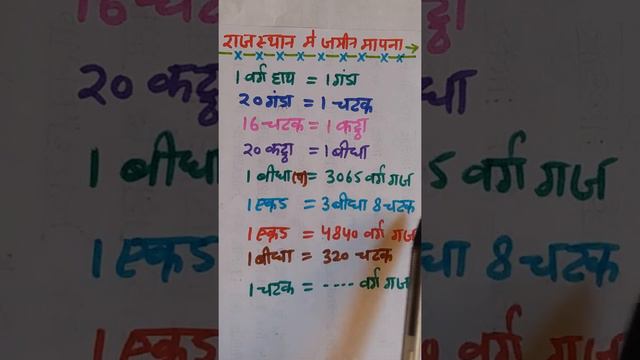 राजस्थान में जमीन मापना
1 वर्ग हाथ = 1 गंडा
20 गंडा = 1 चटक
16 चटक = 1 कट्ठा
20 कट्ठा = 1 बीघा
1 बीघा = 3065 वर्ग गज
1 एकड = 3 बीघा 8 चटक
1 एकड = 4840 वर्ग गज
1 बीघा = 320 चटक
1 चटक = ---- वर्ग गज